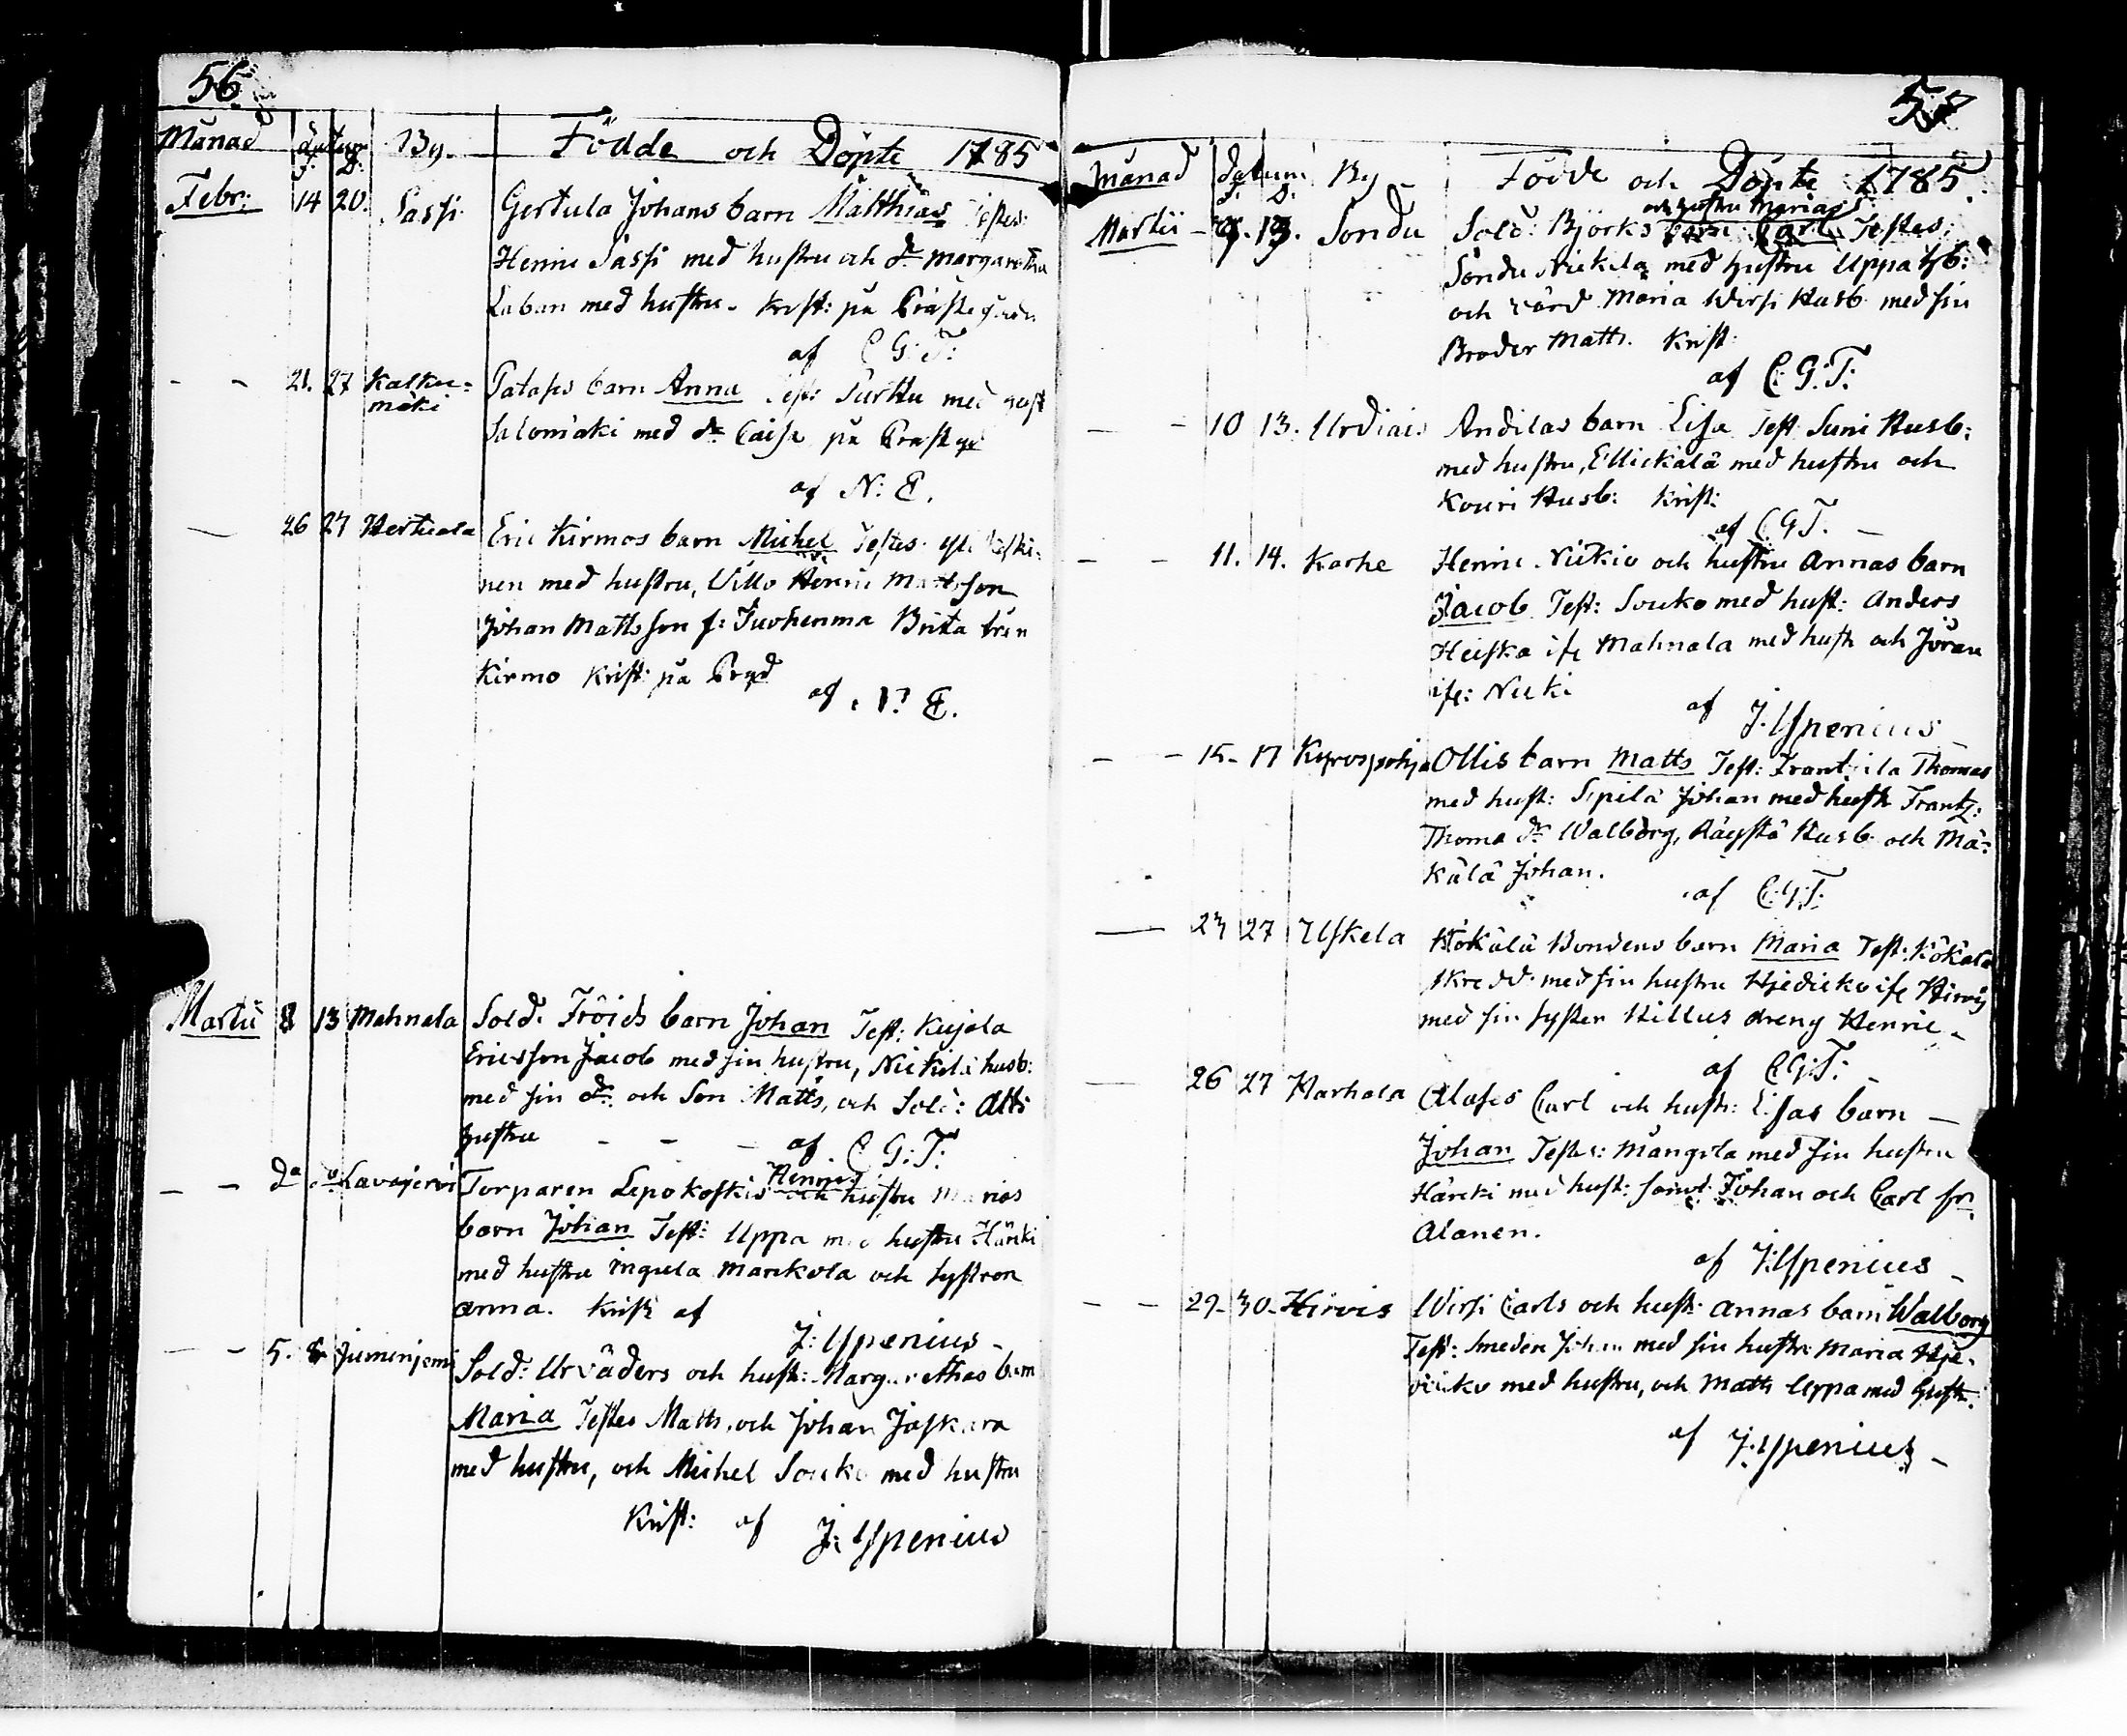 56
Månad datum By. Födde och Döpte 1785
F. D.
Febr: 14 20. Sassi Gertula Johans barn Matthias Testes:
Henric Sassi med hustru och dr Margaretha
Laban med hustru. krist: på Prästegården
af C G: T:
- - 21. 27 Kalku= Pataps barn Anna Test: Turttu med hust
mäki Salomäki med dr Caisa på Prästgd
af N: E.
- 26 27 Herttuala Eric Kirmos barn Michel Testes
nen med hustru, Villo Henric Mattsson
Johan Mattsson f: Juvhenma Brita från
Kirmo Krist: på Prgd
af N: E.
Martii 8 13 Mahnala Sold. Fröids barn Johan Test: Kujala
Ericsson Jacob med sin hustru, Nickilä husb:
med sin dr: och Son Matts, och Sold: Alts
hustru - - - af C G: T:
- - do do Lavajervi Torparen Lepokoskis Henrics och hustru Marias
barn Johan Test: Uppa med hustru Härcki
med hustru Ingula Marckola och systron
Anna. Krist af
J: Yspenius -
- - 5. 8 Jumenjemi Sold: Urväders och hust: Margarethas barn
Maria Testes Matts, och Johan Jaskara
med hustru, och Michel Souko med hustru
Krist: af J: Yspenius
57
Månad datum By Födde och Döpte 1785.
F. D.
och hustru Marias
Martii - 9. 13. Sondu Sold: Björks barn Carl Testes:
Sondu Nickila med hustru Uppa Hb:
och värd Maria Wirsi Husb med sin
Broder Matts. Krist:
af C: G: T:
- - 10 13. Urdiais Andilas barn Lisa Test Suni Husb:
med hustru, Ellickälä med hustru och
Kouri Husb: krist:
af C G T. -
- - 11. 14. Karhe Henric Nickio och hustru Annas barn
Jacob Test: Souko med hust: Anders
Heiska ifr Mahnala med hust och Jöran
ifr: Nicki
af J. Yspenius
- - 15- 17 Kyrospohja Ollis barn Matts Test: Frantsila Thomas
med hust: Sipilä Johan med hust Frantz:
Thoma dr Walborg, Räystä Husb. och Mä=
kälä Johan.
af C:G:T:
- 23 27 Yskela Kökälä Bondens barn Maria Test: Kökälä
skredd. med sin hustru Hjedicko ifr Hirvis
med sin syster Hillus dreng Henric -
af CG:T:
- 26 27 Harhala Alases Carl och hust: Lisas barn -
Johan Testes: Mångola med sin hustru
Härcki med hust: samt Johan och Carl fr
Alanen.
af J: Yspenius -
- - 29- 30- Hirvis Wirsi Carls och hust: Annas barn Walborg
Test: Smeden Johan med sin hustru Maria Hje-
dicko med hustru, och Matts Uppa med Hustr:
af J: Yspenius -